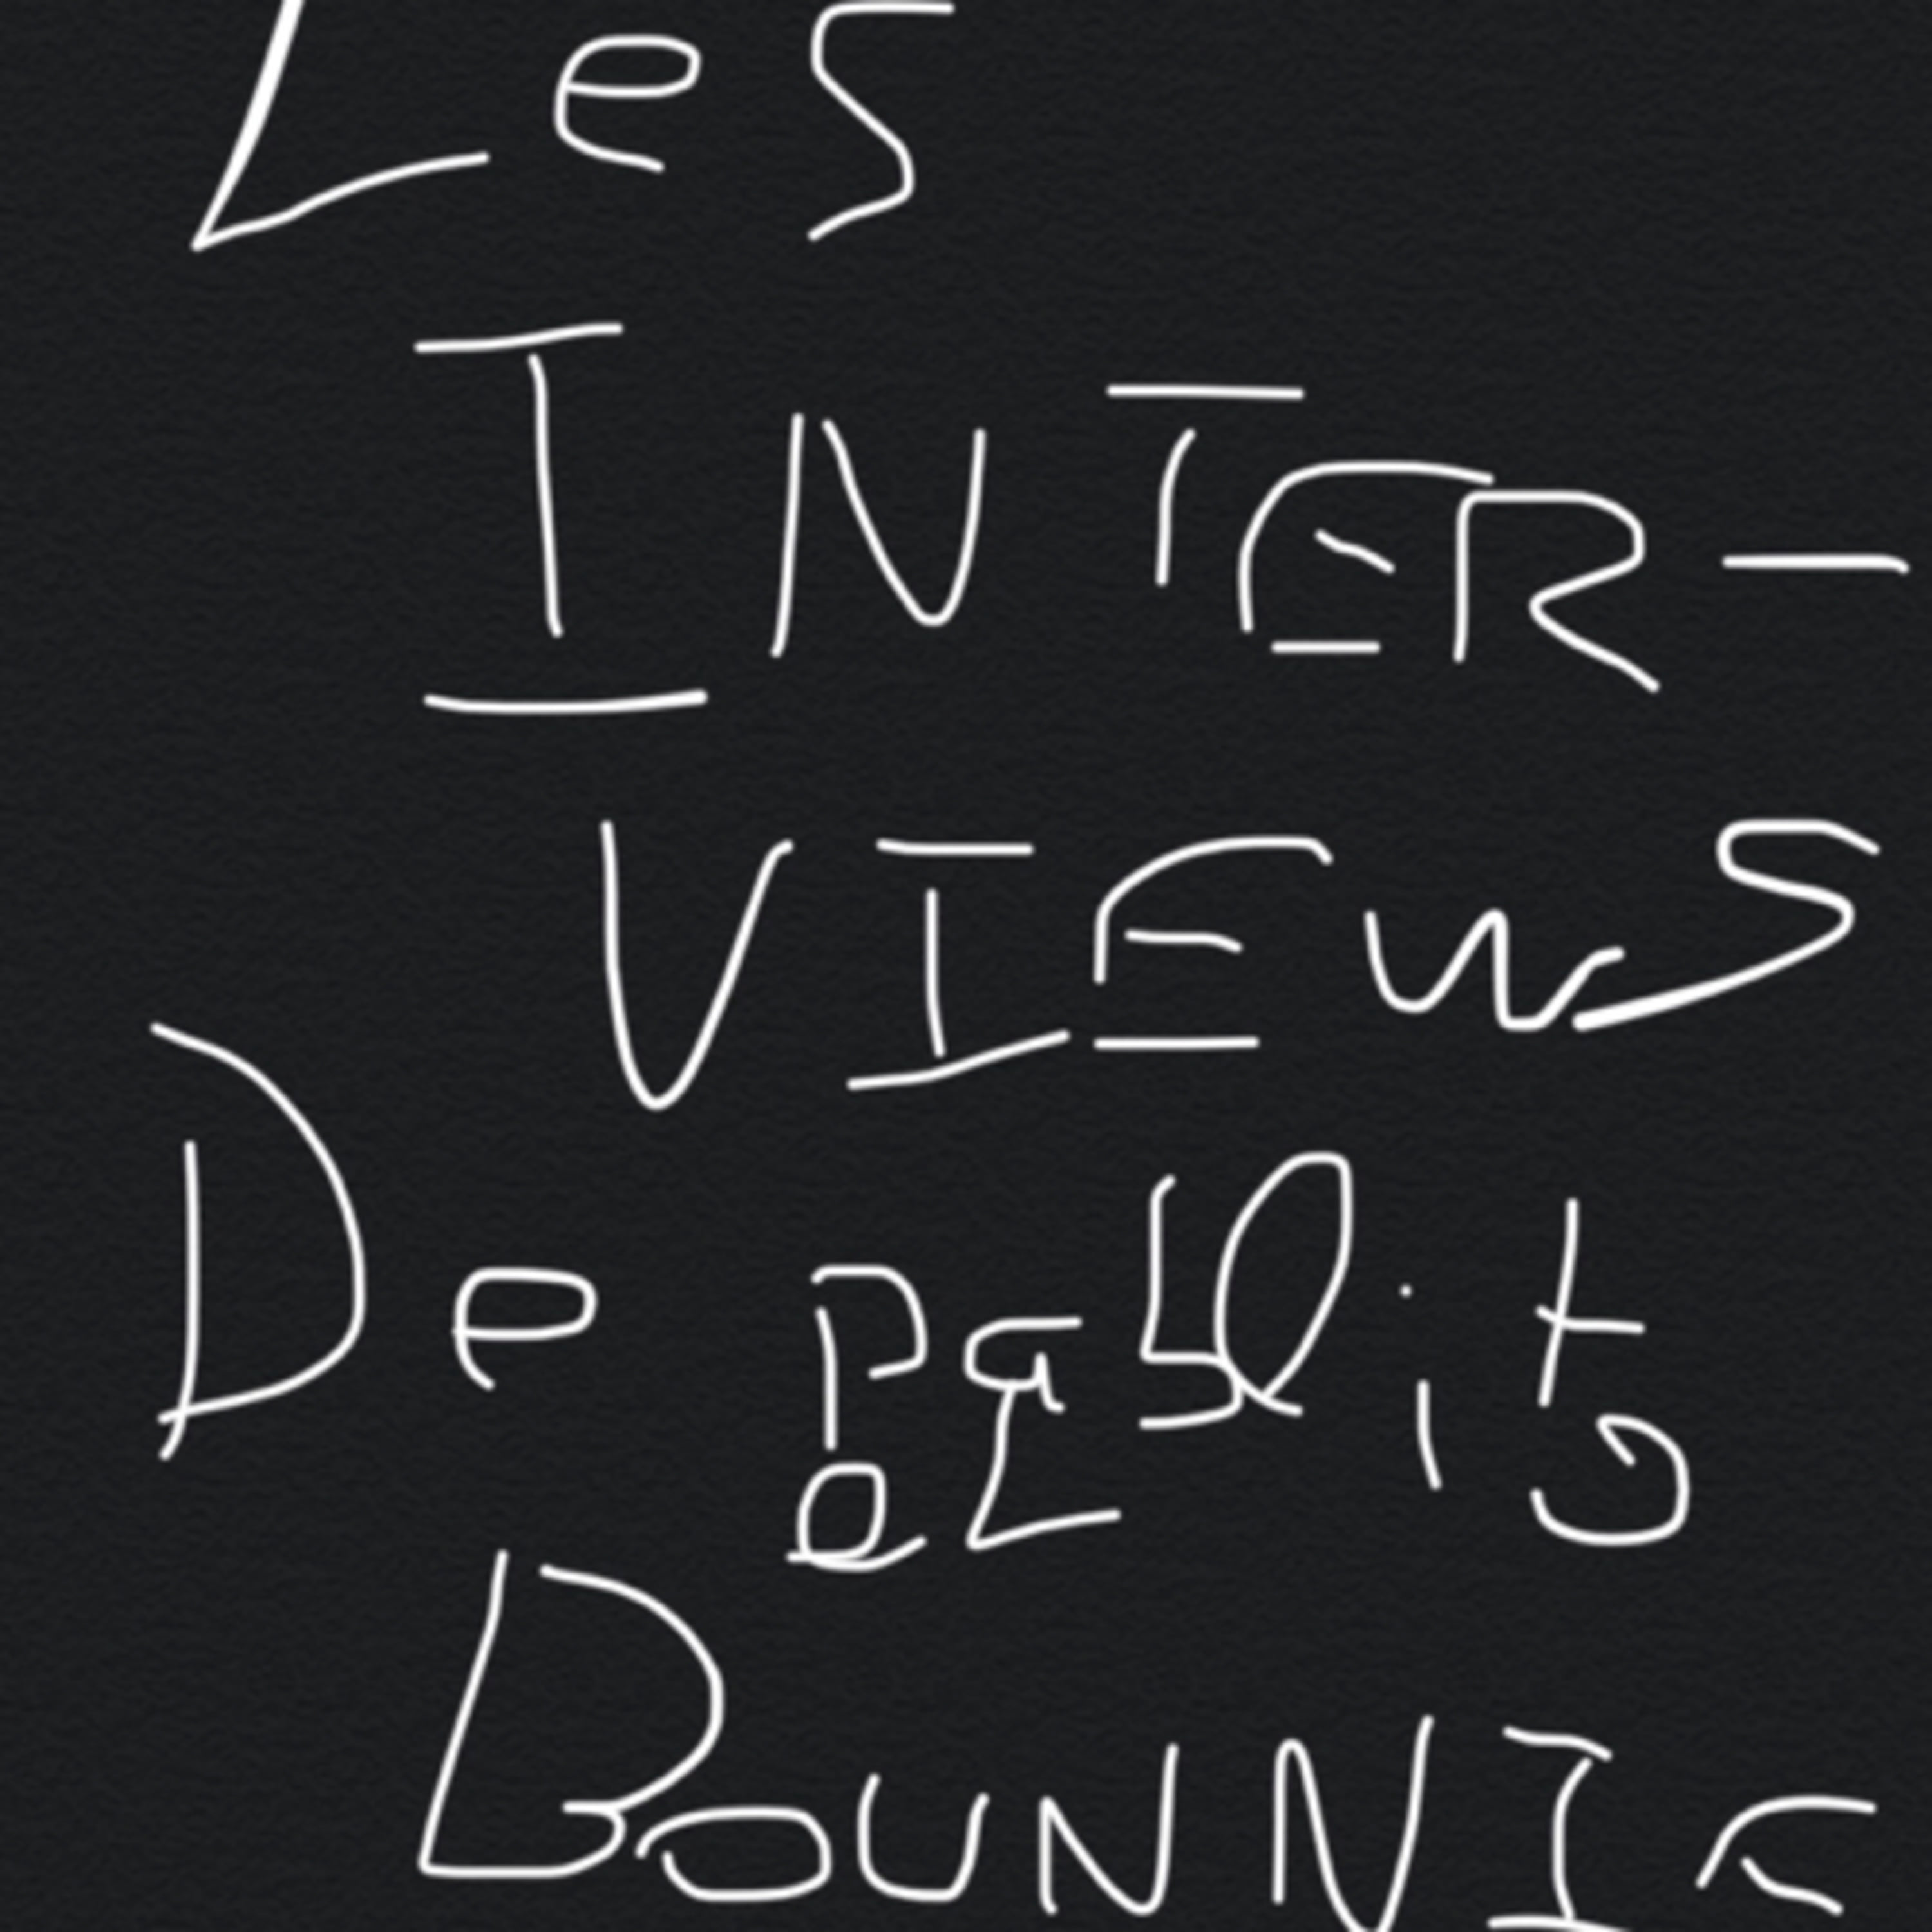 Les
INTER-
VIEWS
De Pablito
el
BOUNNIE